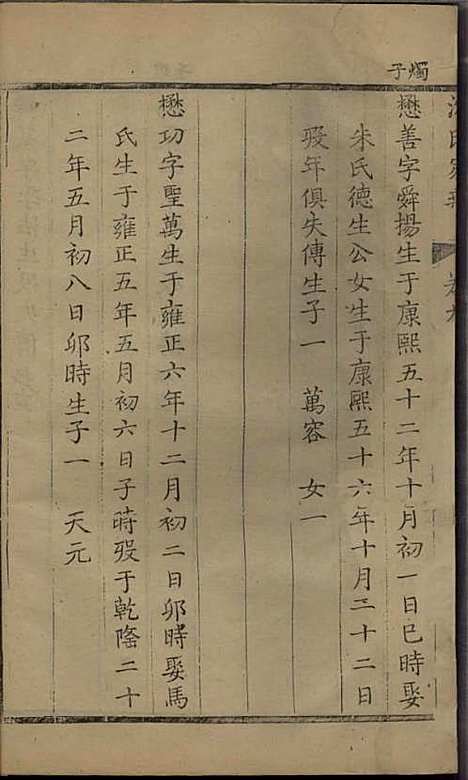 燭子
氏
卷
懋善字舜揚生于康熙五十二年十月初一日巳時娶
朱氏德生公女生于康熙五十六年十月二十二日
歿年俱失傳生子一 萬容 女一
懋功字聖萬生于雍正六年十二月初二日卯時娶馬
氏生于雍正五年五月初六日子時歿于乾隆二十
二年五月初八日卯時生子一 天元